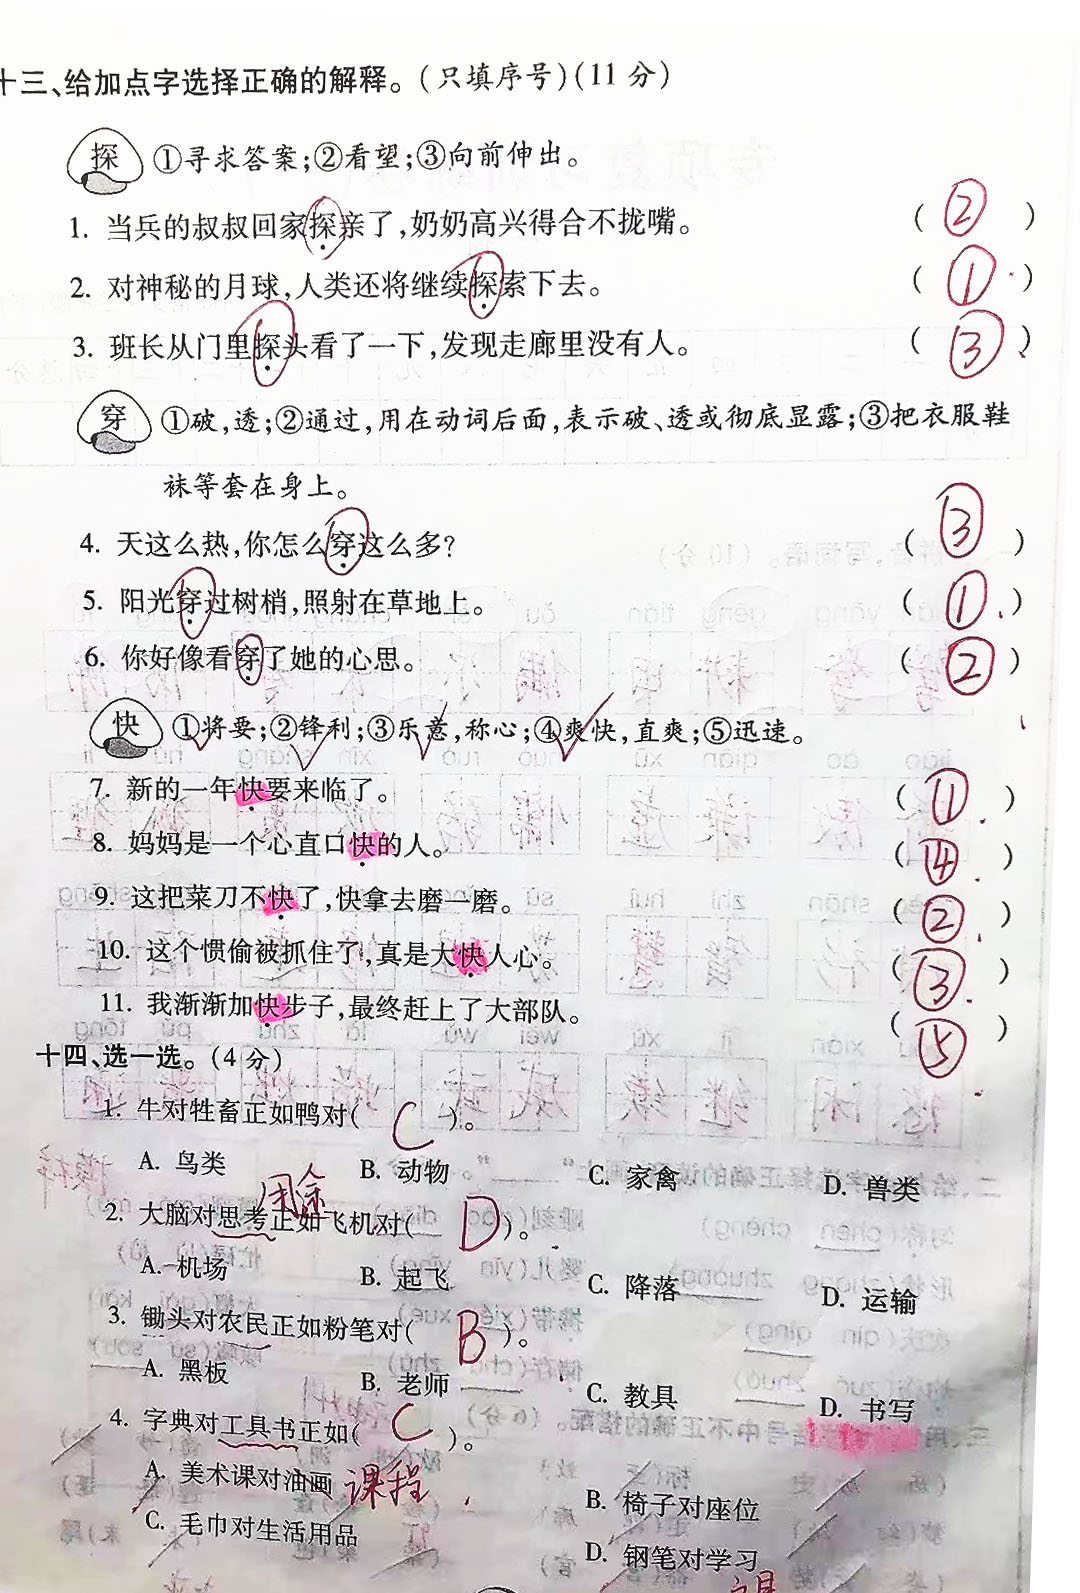 十三、给加点字选择正确的解释。(只填序号)(11分)
探 ①寻求答案;②看望;③向前伸出。
1. 当兵的叔叔回家探亲了,奶奶高兴得合不拢嘴。 (②)
2. 对神秘的月球,人类还将继续探索下去。 (①)
3. 班长从门里探头看了一下,发现走廊里没有人。 (③)
穿 ①破,透;②通过,用在动词后面,表示破、透或彻底显露;③把衣服鞋
袜等套在身上。
4. 天这么热,你怎么穿这么多? (③)
5. 阳光穿过树梢,照射在草地上。 (①)
6. 你好像看穿了她的心思。 (②)
快 ①将要;②锋利;③乐意,称心;④爽快,直爽;⑤迅速。
7. 新的一年快要来临了。 (①)
8. 妈妈是一个心直口快的人。 (④)
9. 这把菜刀不快了,快拿去磨一磨。 (②)
10. 这个惯偷被抓住了,真是大快人心。 (③)
11. 我渐渐加快步子,最终赶上了大部队。 (⑤)
十四、选一选。(4分)
1. 牛对牲畜正如鸭对( C )。
A. 鸟类 B. 动物 C. 家禽 D. 兽类
用途
2. 大脑对思考正如飞机对( D )。
A. 机场 B. 起飞 C. 降落 D. 运输
3. 锄头对农民正如粉笔对( B )。
A. 黑板 B. 老师 C. 教具 D. 书写
4. 字典对工具书正如( C )。
A. 美术课对油画 课程 B. 椅子对座位
C. 毛巾对生活用品 D. 钢笔对学习